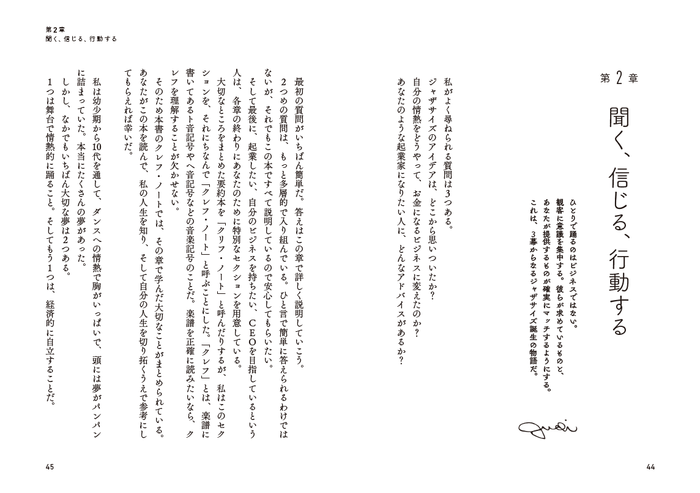 第2章
聞く、信じる、行動する
ひとりで踊るのはビジネスではない。
観客に意識を集中する。彼らが求めているものと、
あなたが提供するものが確実にマッチするようにする。
これは、3幕からなるジャザサイズ誕生の物語だ。
私がよく尋ねられる質問は3つある。
ジャザサイズのアイデアは、どこから思いついたか？
自分の情熱をどうやって、お金になるビジネスに変えたのか？
あなたのような起業家になりたい人に、どんなアドバイスがあるか？
44
第2章
聞く、信じる、行動する
最初の質問がいちばん簡単だ。答えはこの章で詳しく説明していこう。
2つめの質問は、もっと多層的で入り組んでいる。ひと言で簡単に答えられるわけでは
ないが、それでもこの本ですべて説明しているので安心してもらいたい。
そして最後に、起業したい、自分のビジネスを持ちたい、CEOを目指しているという
人は、各章の終わりにあなたのために特別なセクションを用意している。
大切なところをまとめた要約本を「クリフ・ノート」と呼んだりするが、私はこのセク
ションを、それにちなんで「クレフ・ノート」と呼ぶことにした。「クレフ」とは、楽譜に
書いてあるト音記号やヘ音記号などの音楽記号のことだ。楽譜を正確に読みたいなら、ク
レフを理解することが欠かせない。
そのため本書のクレフ・ノートでは、その章で学んだ大切なことがまとめられている。
あなたがこの本を読んで、私の人生を知り、そして自分の人生を切り拓くうえで参考にし
てもらえれば幸いだ。
私は幼少期から10代を通して、ダンスへの情熱で胸がいっぱいで、頭には夢がパンパン
に詰まっていた。本当にたくさんの夢があった。
しかし、なかでもいちばん大切な夢は2つある。
1つは舞台で情熱的に踊ること。そしてもう1つは、経済的に自立することだ。
45